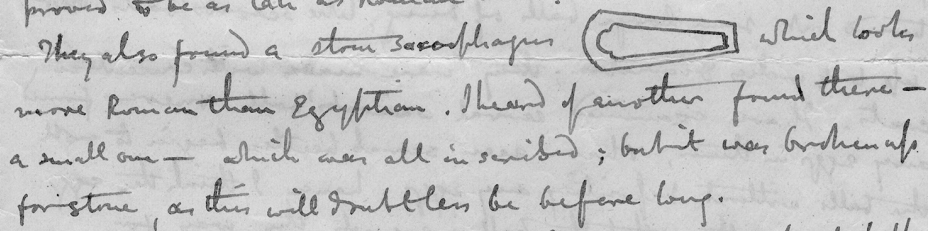 proved to be as late as Roman.
They also found a stone sarcophagus which looks
more Roman than Egyptian. I heard of another found there —
a small one — which was all inscribed; but it was broken up
for stone, as this will doubtless be before long.